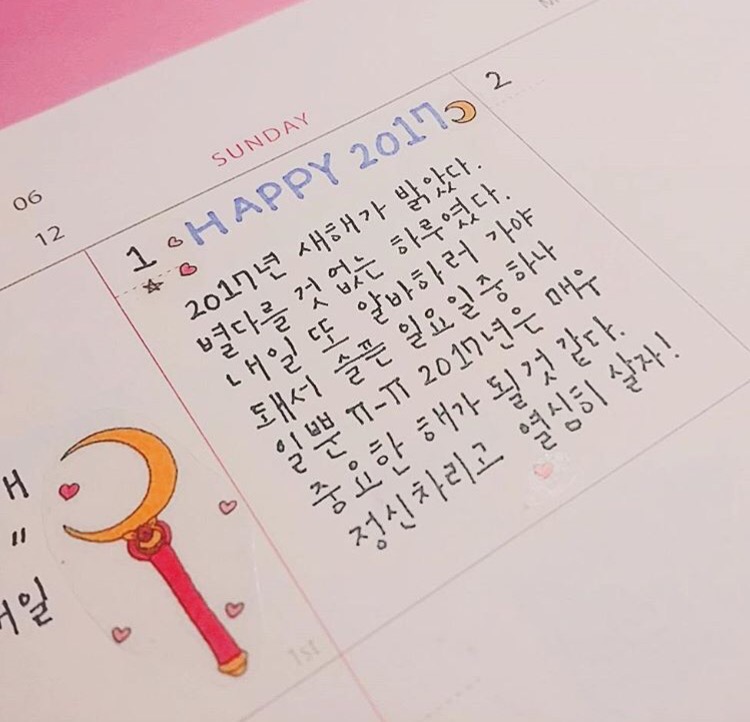 SUNDAY
06
12
1
2
HAPPY 2017
2017년 새해가 밝았다.
별다를 것 없는 하루였다.
내일 또 알바하러 가야
돼서 슬픈 일요일중 하나
일뿐 ㅠ-ㅠ 2017년은 매우
중요한 해가 될것 같다.
정신차리고 열심히 살자!
"
일
1st